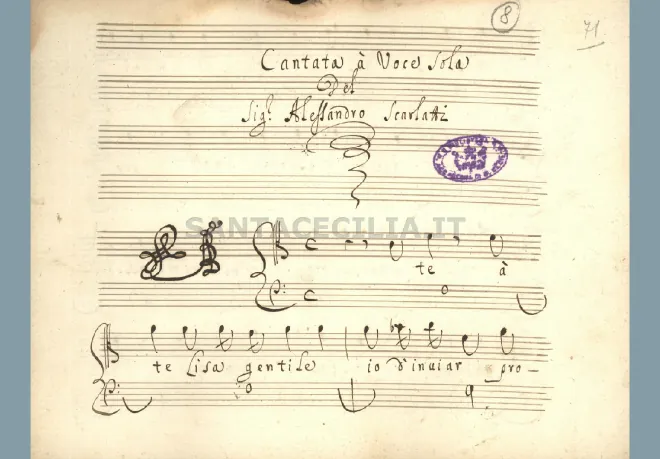 8
71
Cantata à Voce Sola
Del
Sig.r Alessandro Scarlatti
SANTACECILIA.IT
te à
te Lisa gentile io d'inuiar pro–